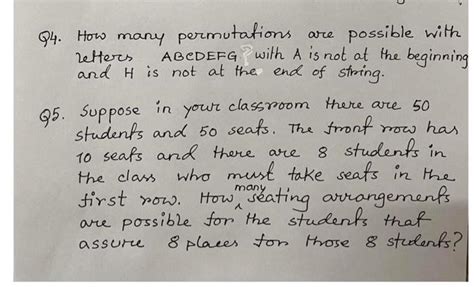 Q4. How many permutations are possible with
letters ABCDEFG? with A is not at the beginning
and H is not at the end of string.
Q5. Suppose in your classroom there are 50
students and 50 seats. The front row has
10 seats and there are 8 students in
the class who must take seats in the
first row. How many seating arrangements
are possible for the students that
assure 8 places for those 8 students?